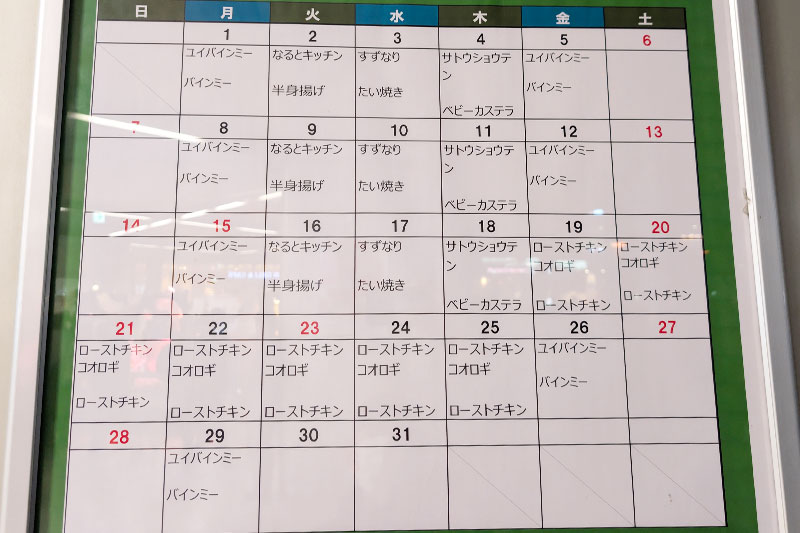 日 月 火 水 木 金 土
1 2 3 4 5 6
ユイバインミー なるとキッチン すずなり サトウショウテ ユイバインミー
ン
バインミー 半身揚げ たい焼き バインミー
ベビーカステラ
7 8 9 10 11 12 13
ユイバインミー なるとキッチン すずなり サトウショウテ ユイバインミー
ン
バインミー 半身揚げ たい焼き バインミー
ベビーカステラ
14 15 16 17 18 19 20
ユイバインミー なるとキッチン すずなり サトウショウテ ローストチキン ローストチキン
ン コオロギ コオロギ
バインミー 半身揚げ たい焼き
ベビーカステラ ローストチキン ローストチキン
21 22 23 24 25 26 27
ローストチキン ローストチキン ローストチキン ローストチキン ローストチキン ユイバインミー
コオロギ コオロギ コオロギ コオロギ コオロギ
バインミー
ローストチキン ローストチキン ローストチキン ローストチキン ローストチキン
28 29 30 31
ユイバインミー
バインミー